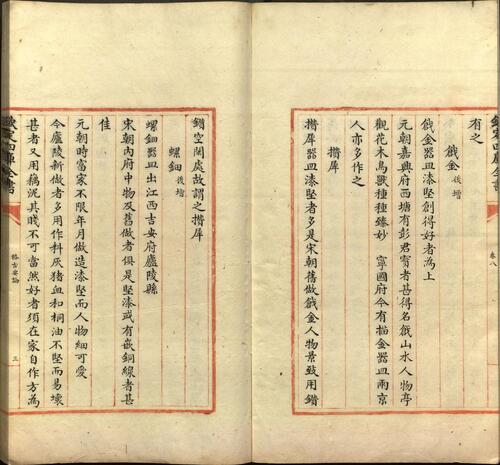 有之
戧金後增
戧金器皿漆堅創得好者為上
元朝嘉興府西塘有彭君寶者甚得名戧山水人物亭
觀花木鳥獸種種臻妙 寧國府今有描金器皿兩京
人亦多作之
攢犀
攢犀器皿漆堅者多是宋朝舊做戧金人物景致用鑽
卷八
欽定四庫全書
鑽空閒處故謂之攢犀
螺鈿後增
螺鈿器皿出江西吉安府廬陵縣
宋朝內府中物及舊做者俱是堅漆或有嵌銅線者甚
佳
元朝時富家不限年月做造漆堅而人物細可愛
今廬陵新做者多用作料灰猪血和桐油不堅而易壞
甚者又用藕泥其賤不可當然好者須在家自作方為
欽定四庫全書
格古要論
三